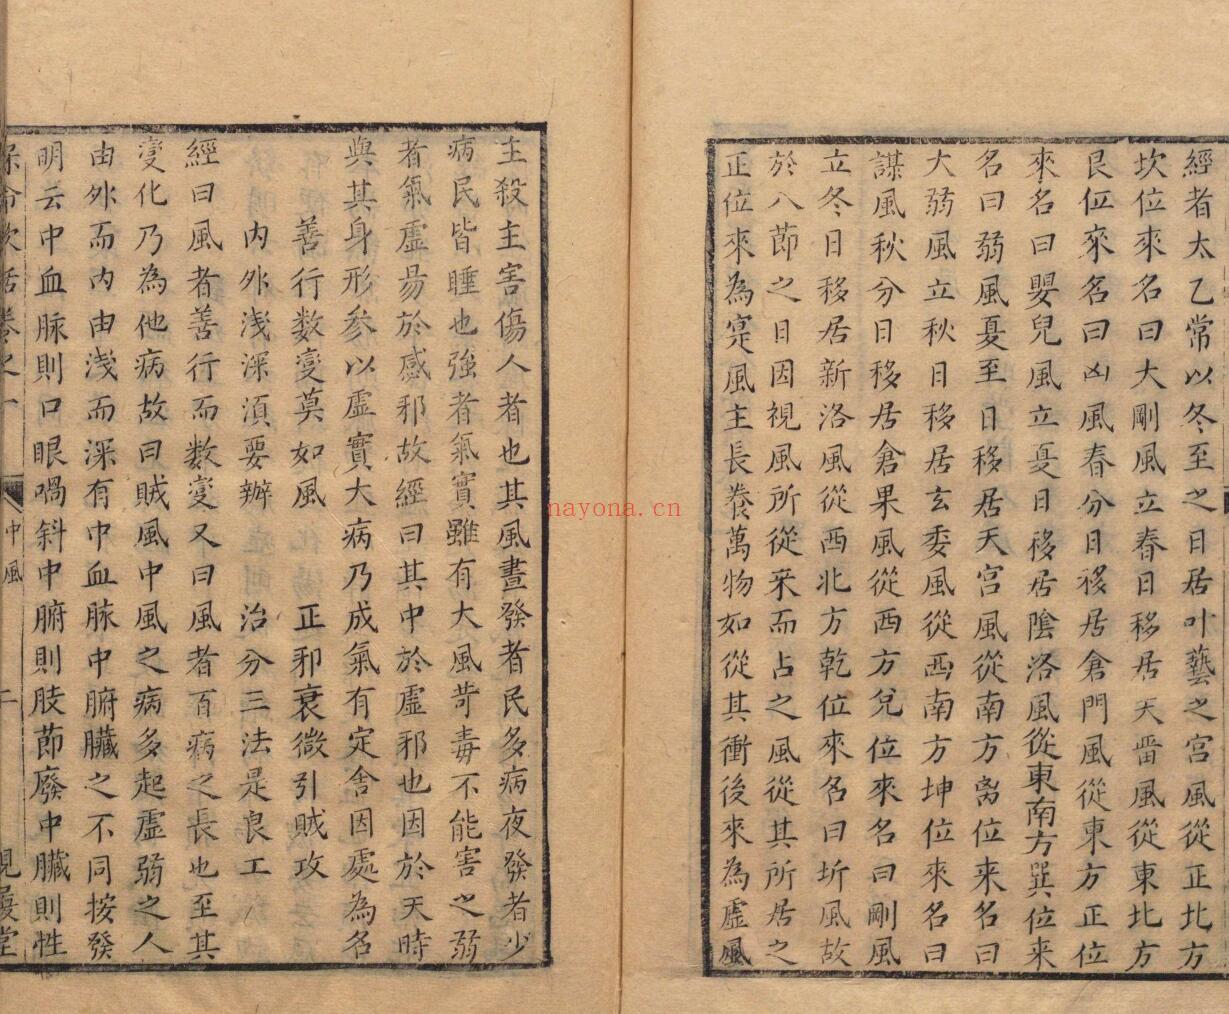 經者太乙常以冬至之日居叶蟄之宮風從正北方
坎位來名曰大剛風立春日移居天畱風從東北方
艮位來名曰凶風春分日移居倉門風從東方正位
來名曰嬰兒風立夏日移居陰洛風從東南方巽位來
名曰弱風夏至日移居天宮風從南方离位來名曰
大弱風立秋日移居玄委風從西南方坤位來名曰
謀風秋分日移居倉果風從西方兌位來名曰剛風
立冬日移居新洛風從西北方乾位來名曰圻風故
於八節之日因視風所從來而占之風從其所居之
正位來為寔風主長養萬物如從其衝後來為虛風
主殺主害傷人者也其風晝發者民多病夜發者少
病民皆睡也強者氣實雖有大風苛毒不能害之弱
者氣虛昜於感邪故經曰其中於虛邪也因於天時
與其身形參以虛實大病乃成氣有定舍因處為名
善行数變莫如風 正邪衰微引賊攻
內外淺深湏要辦 治分三法是良工
經曰風者善行而数變又曰風者百病之長也至其
變化乃為他病故曰賊風中風之病多起虛弱之人
由外而內由淺而深有中血脉中腑臟之不同按發
明云中血脉則口眼喎斜中腑則肢節廢中臟則性
保命歌括卷之一 中風 二 視履堂
nayona.cn